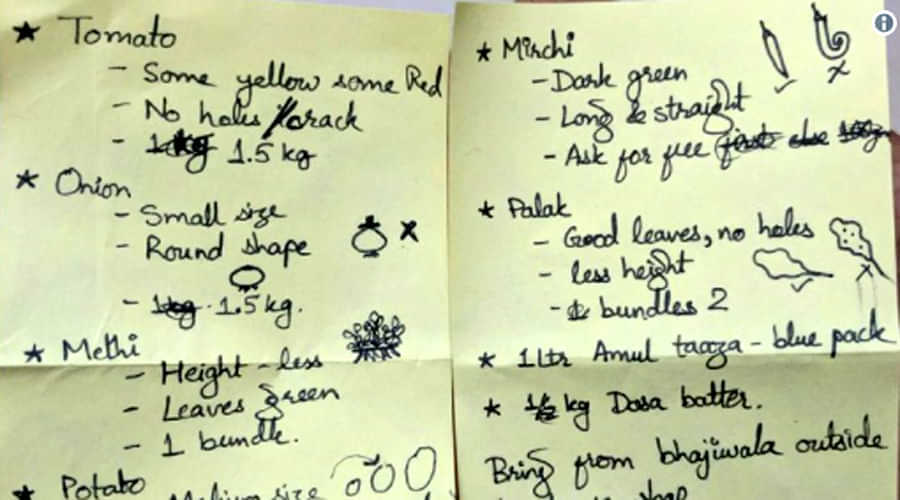 ★ Tomato
- Some yellow some Red
- No holes / crack
- 1.5 kg
★ Onion
- Small size
- Round shape
- 1.5 kg.
★ Methi
- Height - less
- Leaves green
- 1 bundle.
★ Potato
Medium size
★ Mirchi
- Dark green
- Long & straight
- Ask for free
★ Palak
- Good leaves, no holes
- less height
- bundles 2
★ 1 Ltr Amul taaza - blue pack
★ kg Dosa batter.
Bring from bhajiwala outside